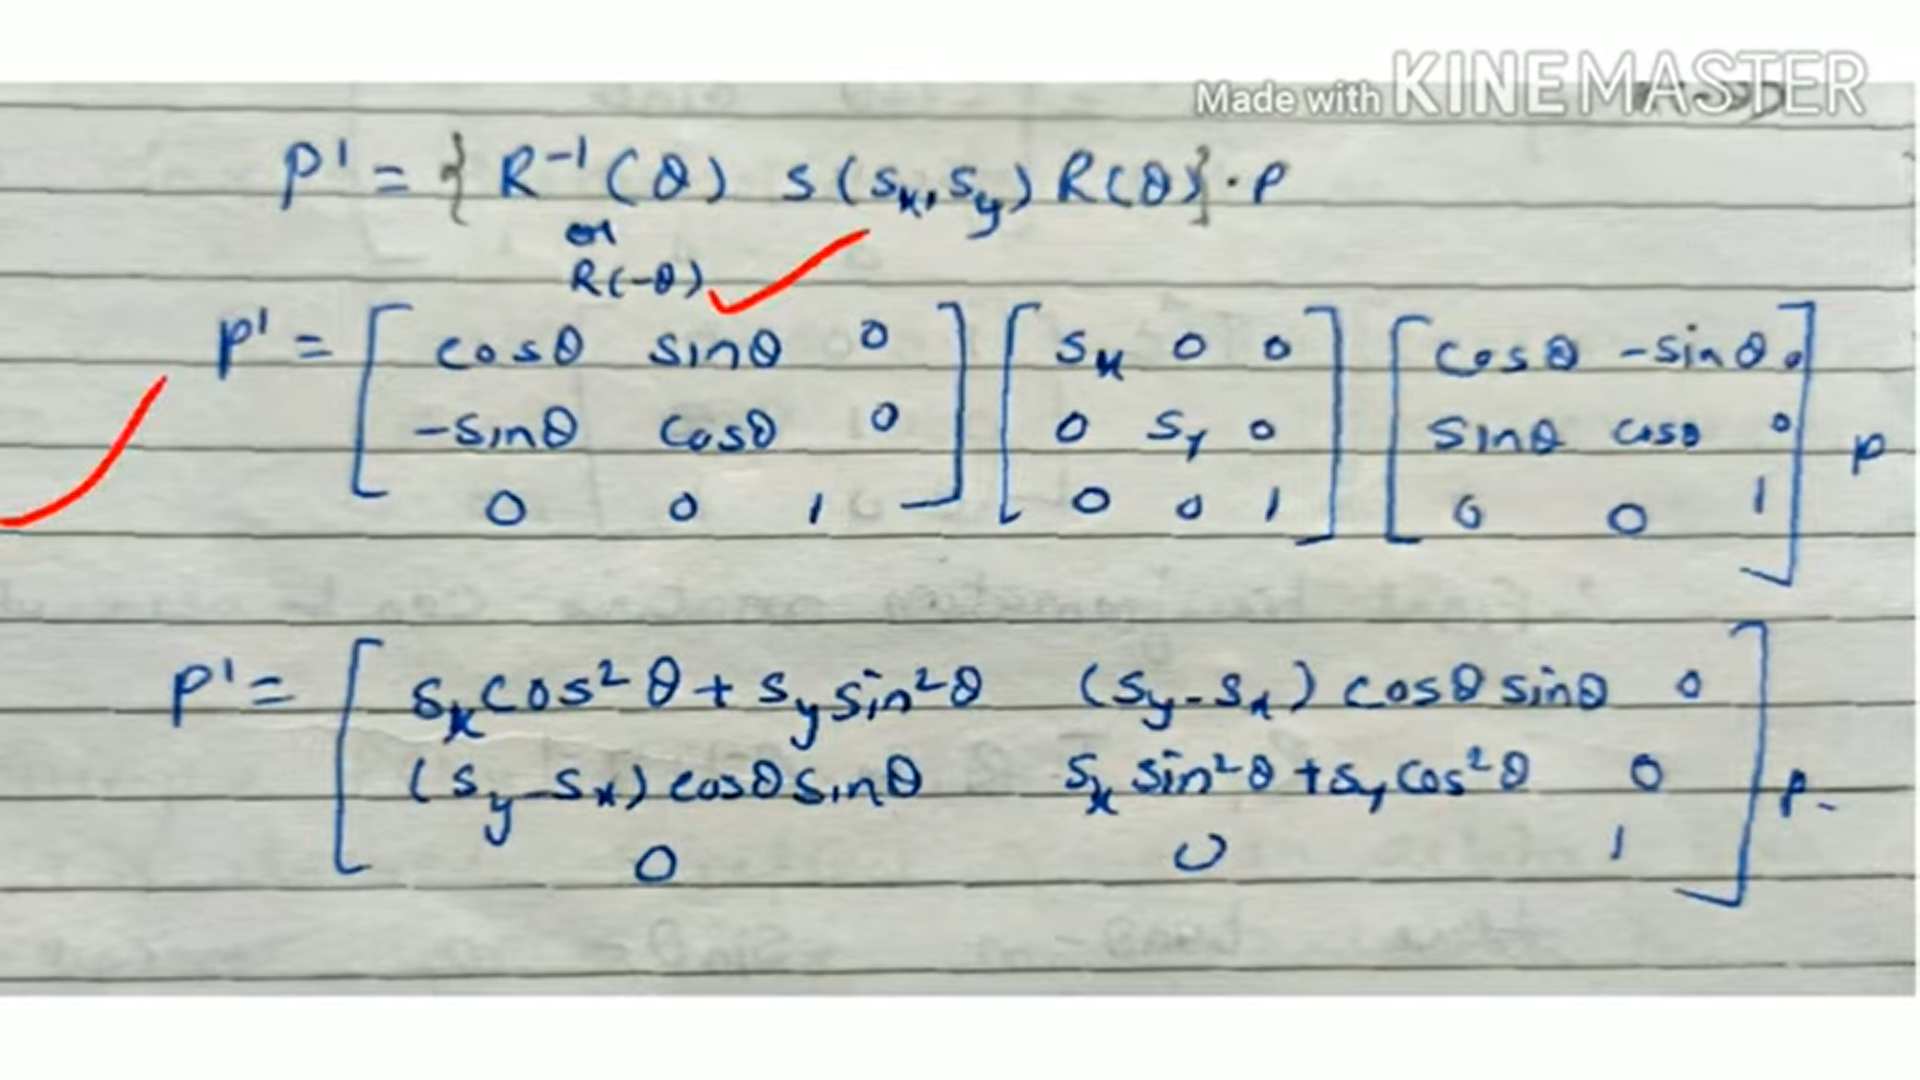 Made with KINEMASTER
P' = { R⁻¹(θ) S(Sx, Sy) R(θ)} · P
or
R(-θ)
P' = [ cosθ sinθ 0 ] [ Sx 0 0 ] [ cosθ -sinθ 0 ]
-sinθ cosθ 0 0 Sy 0 sinθ cosθ 0 P
0 0 1 0 0 1 0 0 1
P' = [ Sx cos²θ + Sy sin²θ (Sy - Sx) cosθ sinθ 0 ]
(Sy - Sx) cosθ sinθ Sx sin²θ + Sy cos²θ 0 P.
0 0 1